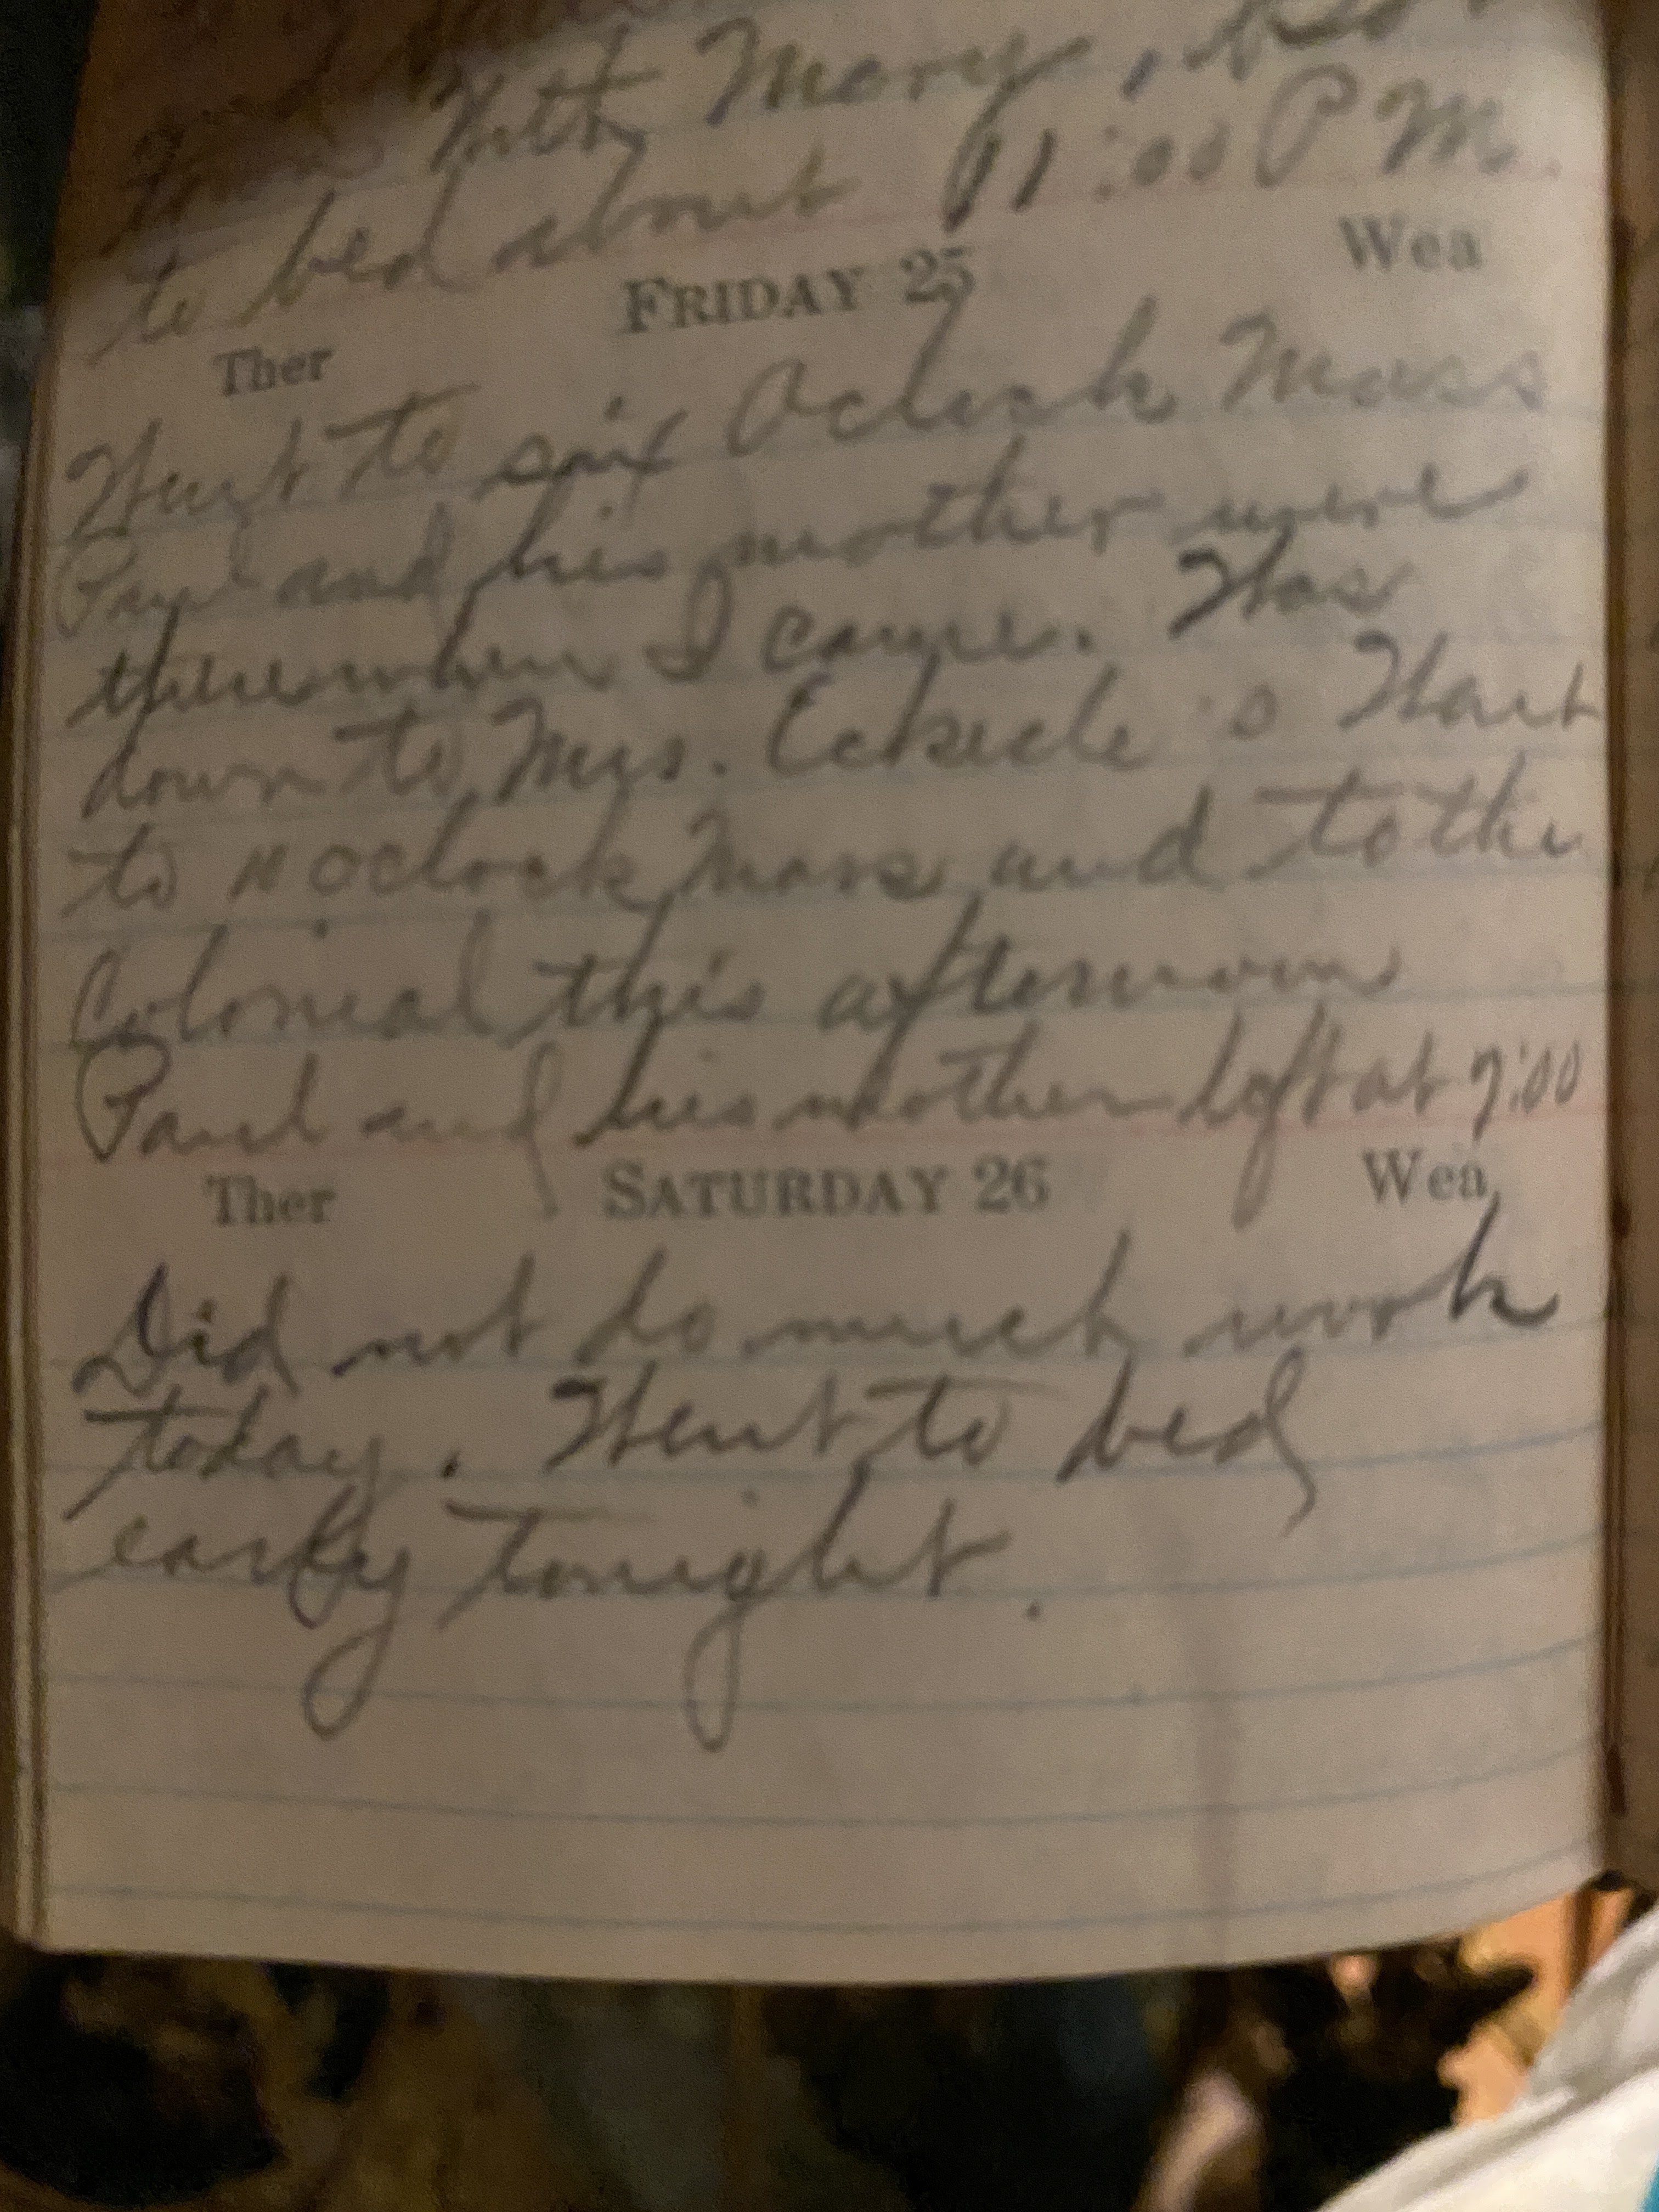 with Mary,
to bed about 11:00 P M.
FRIDAY 25 Wea
Ther
Went to six Oclock Mass
Paul and his mother were
there when I came. Was
down to Mrs. 's Went
to 11 oclock Mass and to the
Colonial this afternoon
Paul and his mother left at 7:00
Ther SATURDAY 26 Wea
Did not do much work
today. Went to bed
early tonight.